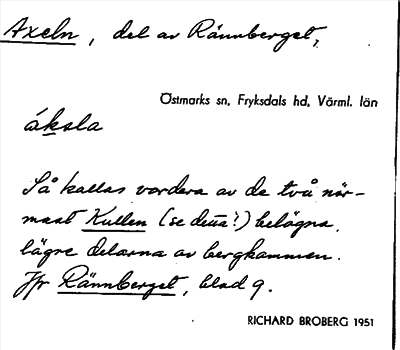 Axeln, del av Rännberget,
Östmarks sn, Fryksdals hd, Värml. län
áksla
Så kallas vardera av de två när-
mast Kullen (se detta!) belägna
lägre delarna av bergkammen.
Jfr Rännberget, blad 9.
RICHARD BROBERG 1951